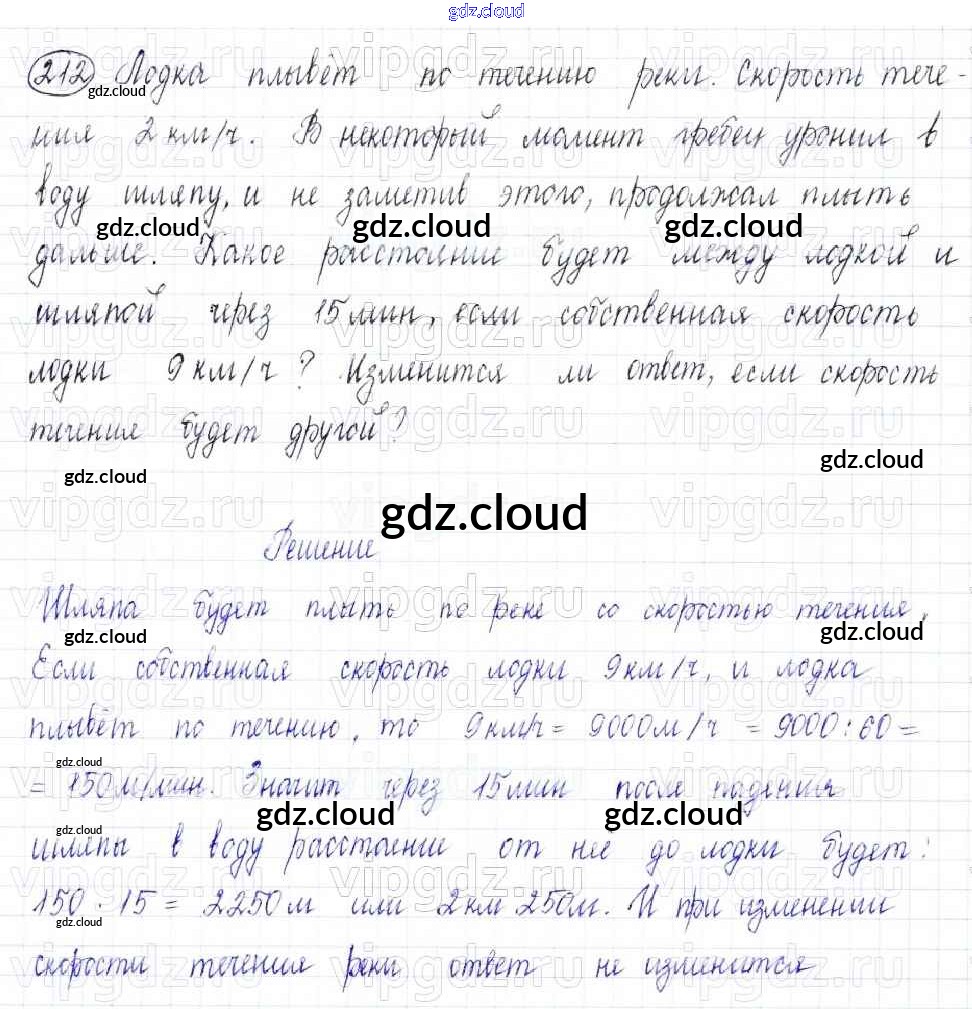 gdz.cloud
212 Лодка плывёт по течению реки. Скорость тече-
gdz.cloud
ния 2 км/ч. В некоторый момент гребец уронил в
воду шляпу, и не заметив этого, продолжал плыть
gdz.cloud gdz.cloud gdz.cloud
дальше. Какое расстояние будет между лодкой и
шляпой через 15 мин, если собственная скорость
лодки 9 км/ч? Изменится ли ответ, если скорость
течения будет другой?
gdz.cloud gdz.cloud
gdz.cloud
Решение
Шляпа будет плыть по реке со скоростью течения.
gdz.cloud gdz.cloud
Если собственная скорость лодки 9 км/ч, и лодка
плывёт по течению, то 9 км/ч = 9000 м/ч = 9000 : 60 =
gdz.cloud
= 150 м/мин. Значит через 15 мин после падения
gdz.cloud gdz.cloud
gdz.cloud
шляпы в воду расстояние от неё до лодки будет:
150 · 15 = 2250 м или 2 км 250 м. И при изменении
gdz.cloud
скорости течения реки ответ не изменится
vipgdz.ru